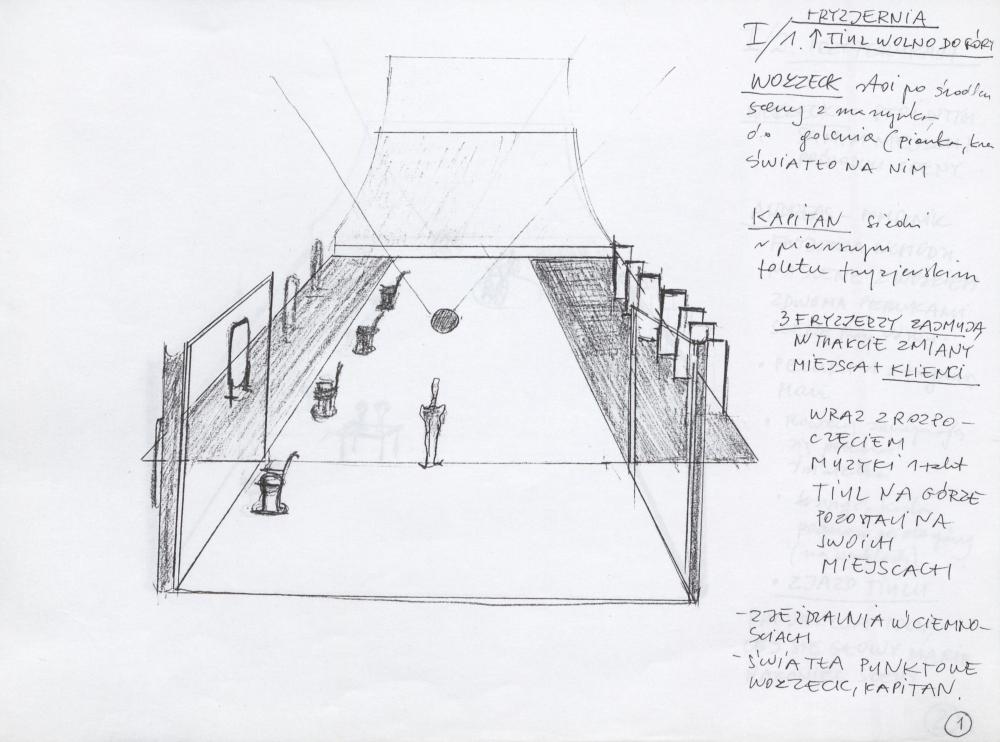 FRYZJERNIA
I/1. ↑ TIUL WOLNO DO GÓRY
WOZZECK stoi po środku
sceny z maszynką
do golenia (pianka, krem
ŚWIATŁO NA NIM
KAPITAN siedzi
w pierwszym
fotelu fryzjerskim
3 FRYZJERZY ZAJMUJĄ
W TRAKCIE ZMIANY
MIEJSCA + KLIENCI
WRAZ Z ROZPO-
CZĘCIEM
MUZYKI 1 takt
TIUL NA GÓRZE
POZOSTALI NA
SWOICH
MIEJSCACH
- ZJEŻDŻALNIA W CIEMNO-
ŚCIACH
- ŚWIATŁA PUNKTOWE
WOZZECK, KAPITAN.
1